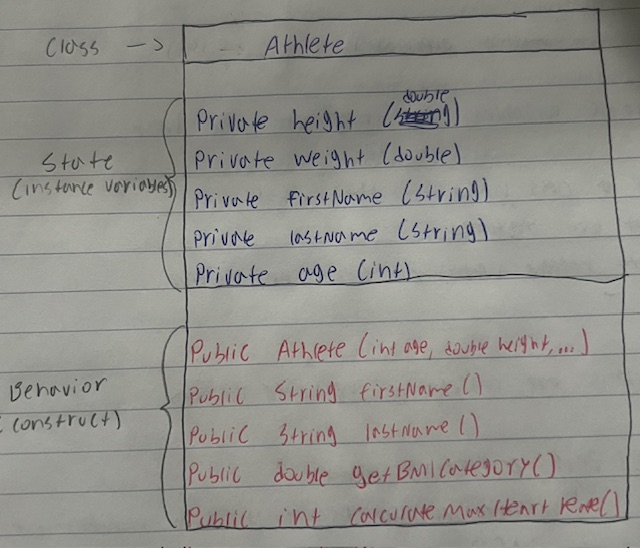 Class --> Athlete
Private height (double)
State
(instance variables)
Private weight (double)
Private firstName (String)
Private lastName (String)
Private age (int)
Behavior
(construct)
Public Athlete (int age, double height,...)
Public String firstName()
Public String lastName()
Public double getBMICategory()
Public int calculateMaxHeart